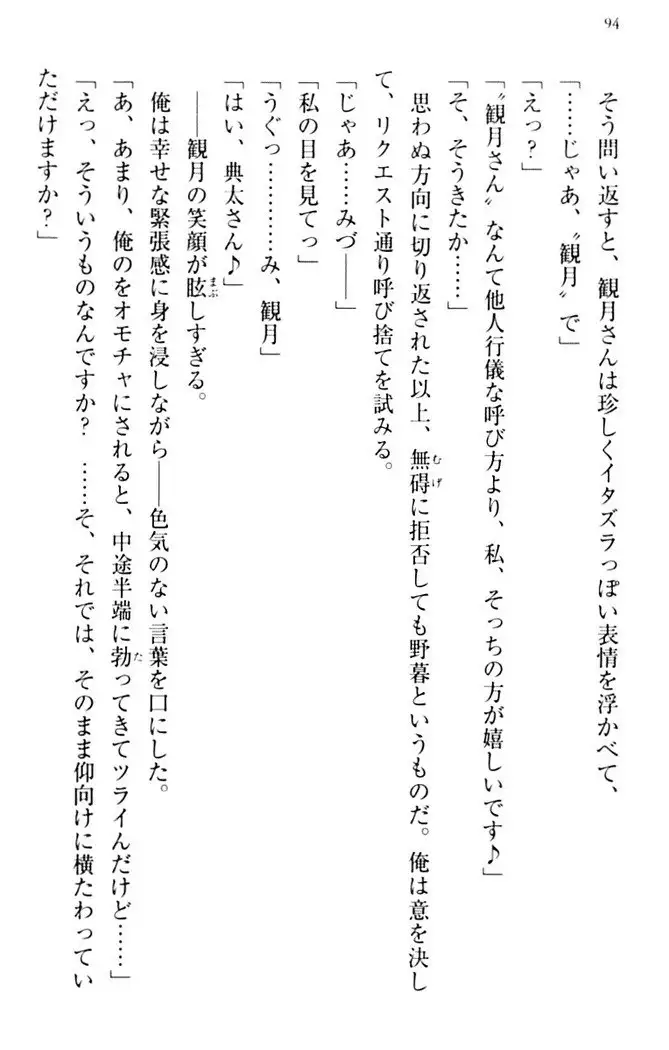 94
そう問い返すと、観月さんは珍しくイタズラっぽい表情を浮かべて、
「……じゃあ、〝観月〟で」
「えっ？」
「〝観月さん〟なんて他人行儀な呼び方より、私、そっちの方が嬉しいです♪」
「そ、そうきたか……」
思わぬ方向に切り返された以上、無碍に拒否しても野暮というものだ。俺は意を決し
て、リクエスト通り呼び捨てを試みる。
「じゃあ……みづ――」
「私の目を見てっ」
「うぐっ…………み、観月」
「はい、典太さん♪」
――観月の笑顔が眩しすぎる。
俺は幸せな緊張感に身を浸しながら――色気のない言葉を口にした。
「あ、あまり、俺のをオモチャにされると、中途半端に勃ってきてツライんだけど……」
「えっ、そういうものなんですか？　……そ、それでは、そのまま仰向けに横たわってい
ただけますか？」
むげ
まぶ
た